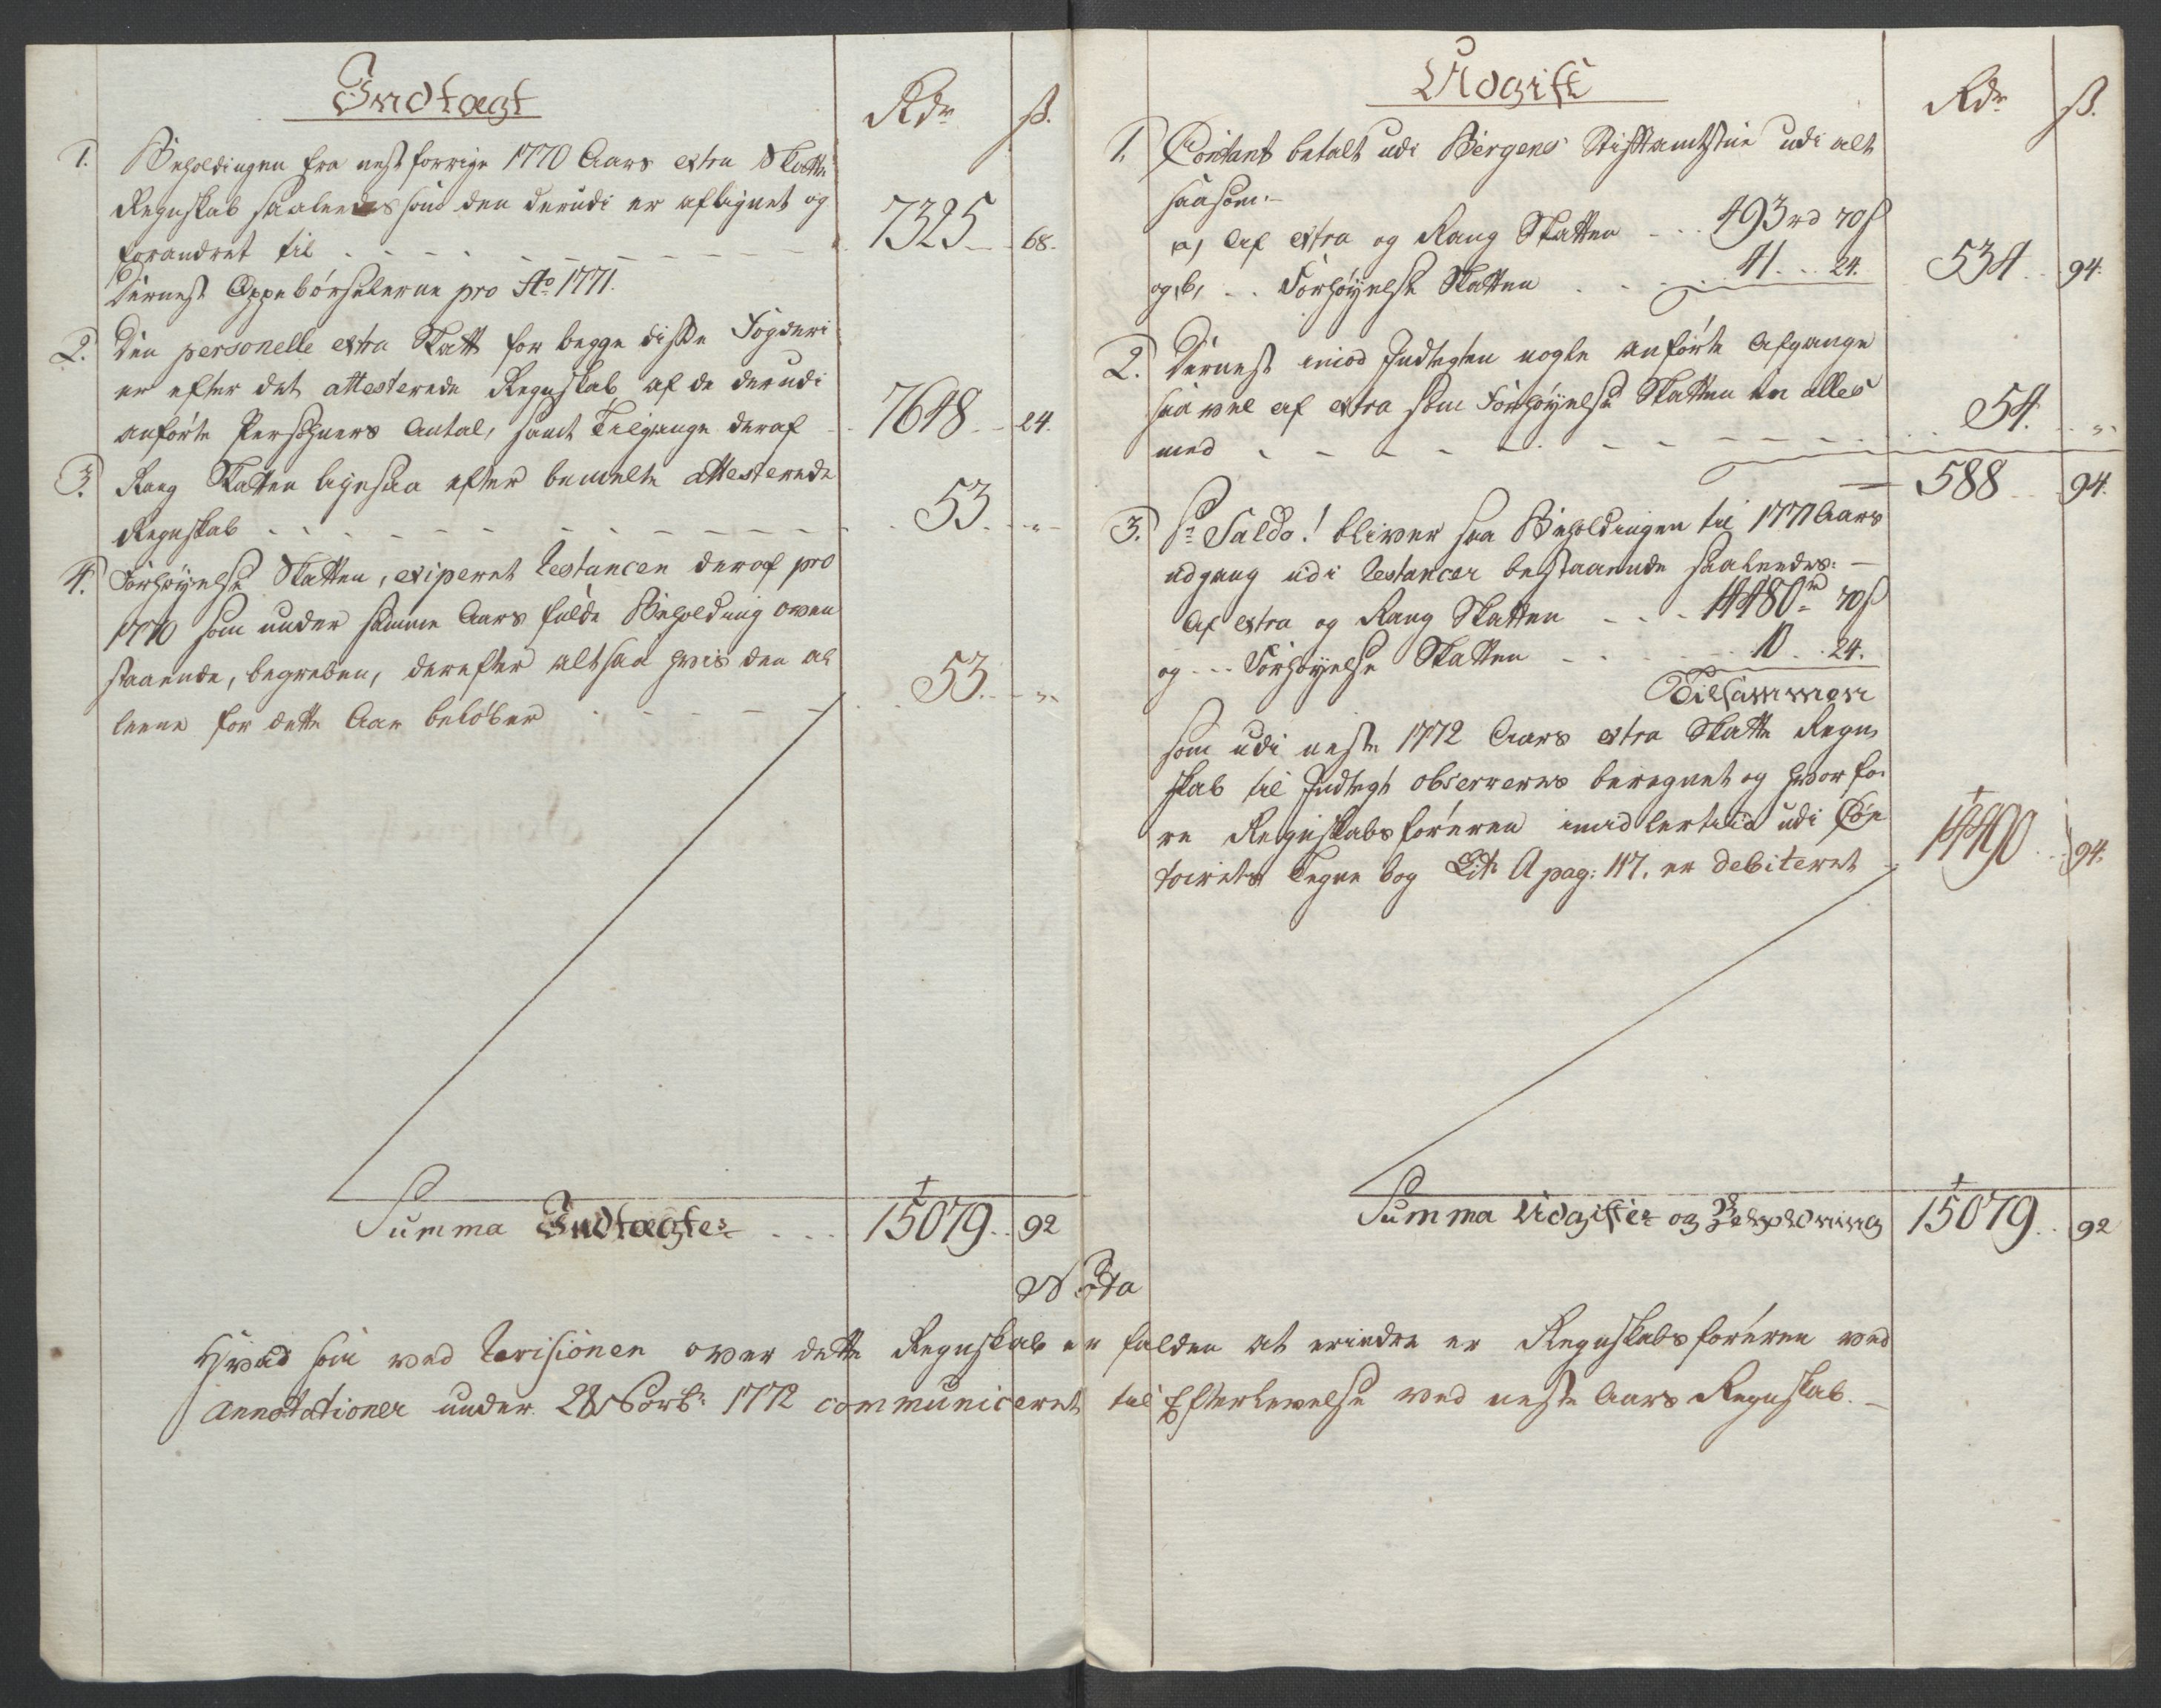 Indtægt
Rdr ß.
1. Beholdingen fra nest forrige 1770 Aars extra Skatte
Regnskab saaledes som den derudi er aflignet og
forandret til 7325 68.
Dernest Oppebørselerne pro Ao 1771.
2. Den personelle extra Skatt for begge disse Fogderi
er efter det attesterede Regnskab af de derudi
anførte Persohners Antal, samt Tilgange deraf 7648 24.
3. Rang Skatten ligesaa efter bemelte attesterede
Regnskab 53. "
4. Forhøyelse Skatten, exiperet Restancen deraf pro
1770 som under samme Aars fulde Beholdning oven
staaende, begreben, derefter altsaa hvis den al
leene for dette Aar beløber 53. "
Summa Indtægter 15079. 92
Udgift
Rdr ß.
1. Contant betalt udi Bergens Stiftamtstue udi alt
saasom.
a) Af extra og Rang Skatten 493 rd 70 ß
og b, Forhøyelse Skatten 41 24. 534 94.
2. Dernest imod Indtegten nogle anførte Afgange
saa vel af extra som Forhøyelse Skatten in alles
med 54. "
588 94.
3. Pr Saldo! bliver saa Beholdingen til 1771 Aars
udgang udi Restancer bestaaende saaledes:
Af extra og Rang Skatten 14480 rd 70 ß
og Forhøyelse Skatten 10 24.
Tilsammen
som udi neste 1772 Aars extra Skatte Regn
skab til Indtegt observeres beregnet og hvorfo
re Regnskabsføreren imidlertiid udi Con
toirets Tegne bog Litr A pag: 117. er debiteret 14490 94.
Summa Udgifter og Beholdning 15079 92
Nota
Hvad som ved Revisionen over dette Regnskab er falden at erindre er Regnskabsføreren ved
Annotationer under 28 Novbr 1772 communiceret til Efterlevelse ved neste Aars Regnskab.